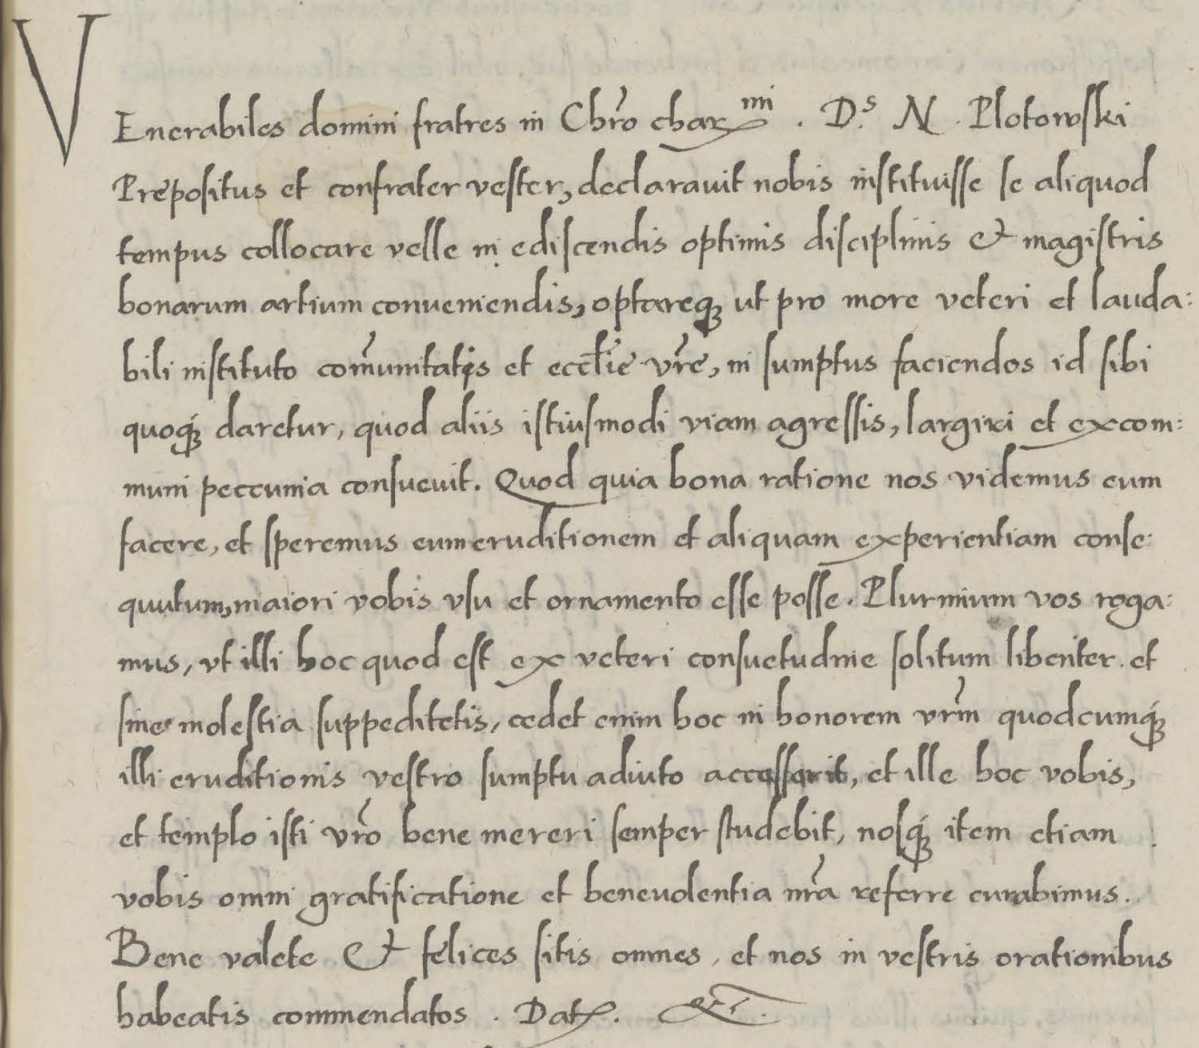 VEnerabiles domini fratres in Chr̃o charmi. Ds. N. Plotowski
Prępositus et confrater vester, declarauit nobis instituisse se aliquod
tempus collocare velle in ediscendis optimis disciplinis & magistris
bonarum artium conueniendis, optareq; ut pro more veteri et lauda:
bili instituto com̃unitatis et eccl̃ie vr̃e, in sumptus faciendos id sibi
quoq; daretur, quod aliis istiusmodi viam agressis, largiri et excom:
muni peccunia consueuit. Quod quia bona ratione nos videmus eum
facere, et speremus eum eruditionem et aliquam experientiam conse:
quutum, maiori vobis vsu et ornamento esse posse. Plurimum vos roga:
mus, vt illi hoc quod est ex veteri consuetudine solitum libenter et
sine molestia suppeditetis, cedet enim hoc in honorem vr̃m quodcumq;
illi eruditionis vestro sumptu adiuto accesserit, et ille hoc vobis,
et templo isti vr̃o bene mereri semper studebit, nosq; item etiam
vobis omni gratificatione et beneuolentia nr̃a referre curabimus.
Bene valete & felices sitis omnes, et nos in vestris orationibus
habeatis commendatos. Dat. &c.